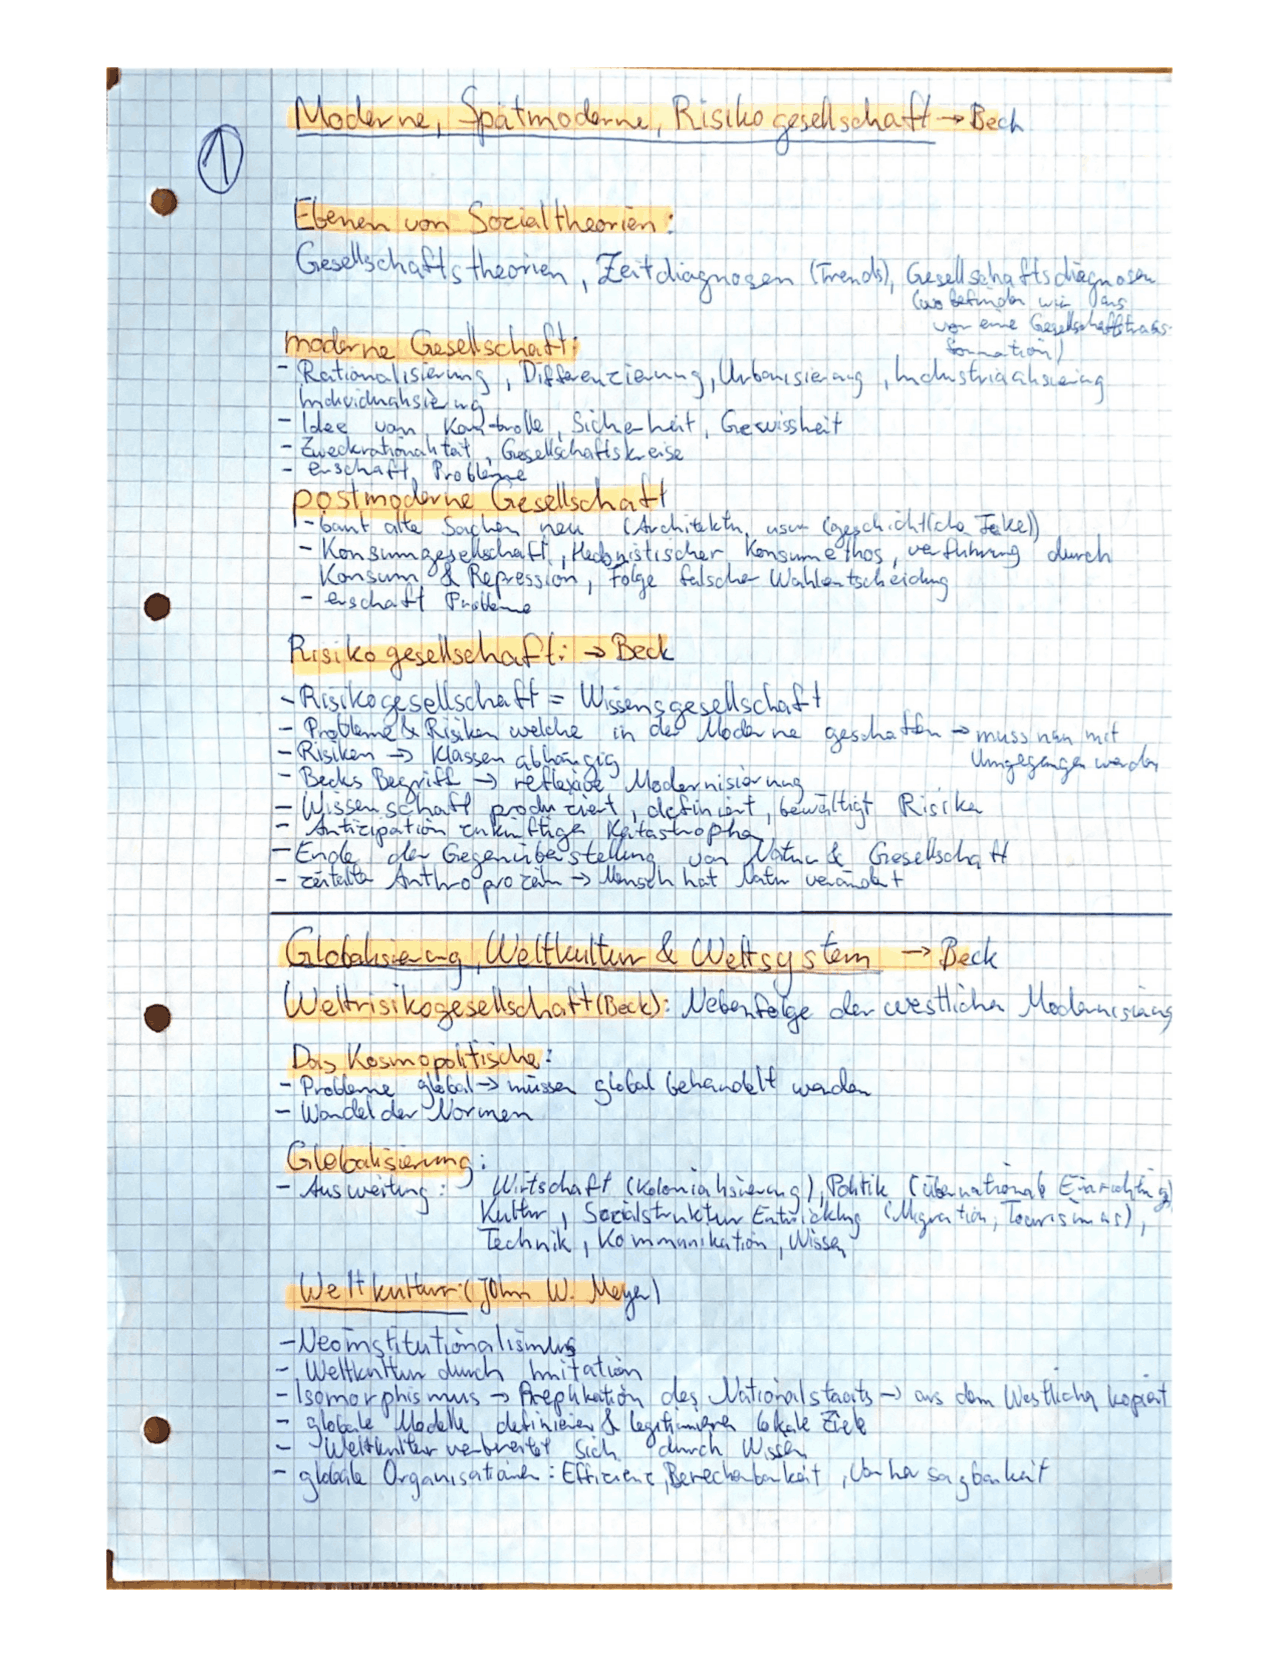 Moderne, Spätmoderne, Risikogesellschaft → Beck
1
Ebenen von Sozialtheorien:
Gesellschaftstheorien, Zeitdiagnosen (Trends), Gesellschaftsdiagnosen
(wo befinden wir uns
vor eine Gesellschafttrans-
formation)
moderne Gesellschaft:
- Rationalisierung, Differenzierung, Urbanisierung, Industriealisierung
Individualisierung
- Idee von Kontrolle, Sicherheit, Gewissheit
- Zweckrationalität, Gesellschaftskreise
- erschaft Probleme
postmoderne Gesellschaft
- baut alte Sachen neu (Architektur, usw (geschichtliche Fake))
- Konsumgesellschaft, Hedonistischer Konsumethos, verführung durch
Konsum & Repression, Folge falscher Wahlentscheidung
- erschaft Probleme
Risikogesellschaft: → Beck
- Risikogesellschaft = Wissensgesellschaft
- Probleme & Risiken welche in der Moderne geschaffen → muss nun mit
Umgegangen werden
- Risiken → Klassen abhängig
- Becks Begriff → reflexive Modernisierung
- Wissenschaft produziert, definiert, bewältigt Risika
- Anticipation zukünftiger Katastrophen
- Ende der Gegenüberstellung von Natur & Gesellschaft
- Zeitalter Anthropozän → Mensch hat Natur verändert
Globalisierung, Weltkultur & Weltsystem → Beck
Weltrisikogesellschaft (Beck): Nebenfolge der westlichen Modernisierung
Das Kosmopolitische:
- Probleme global → müssen global behandelt werden
- Wandel der Normen
Globalisierung:
- Ausweitung: Wirtschaft (Kolonialisierung), Politik (übernationale Einrichtung)
Kultur, Sozialstruktur Entwicklung (Migration, Tourismus),
Technik, Kommunikation, Wissen
Weltkultur: (John W. Meyer)
- Neoinstitutionalismus
- Weltkultur durch Imitation
- Isomorphismus → Replikation des Nationalstaats → aus dem Westlichen kopiert
- globale Modelle definieren & legitimieren lokale Ziele
- Weltkultur verbreitet sich durch Wissen
- globale Organisationen: Effizienz, Berechenbarkeit, Vorhersagbarkeit